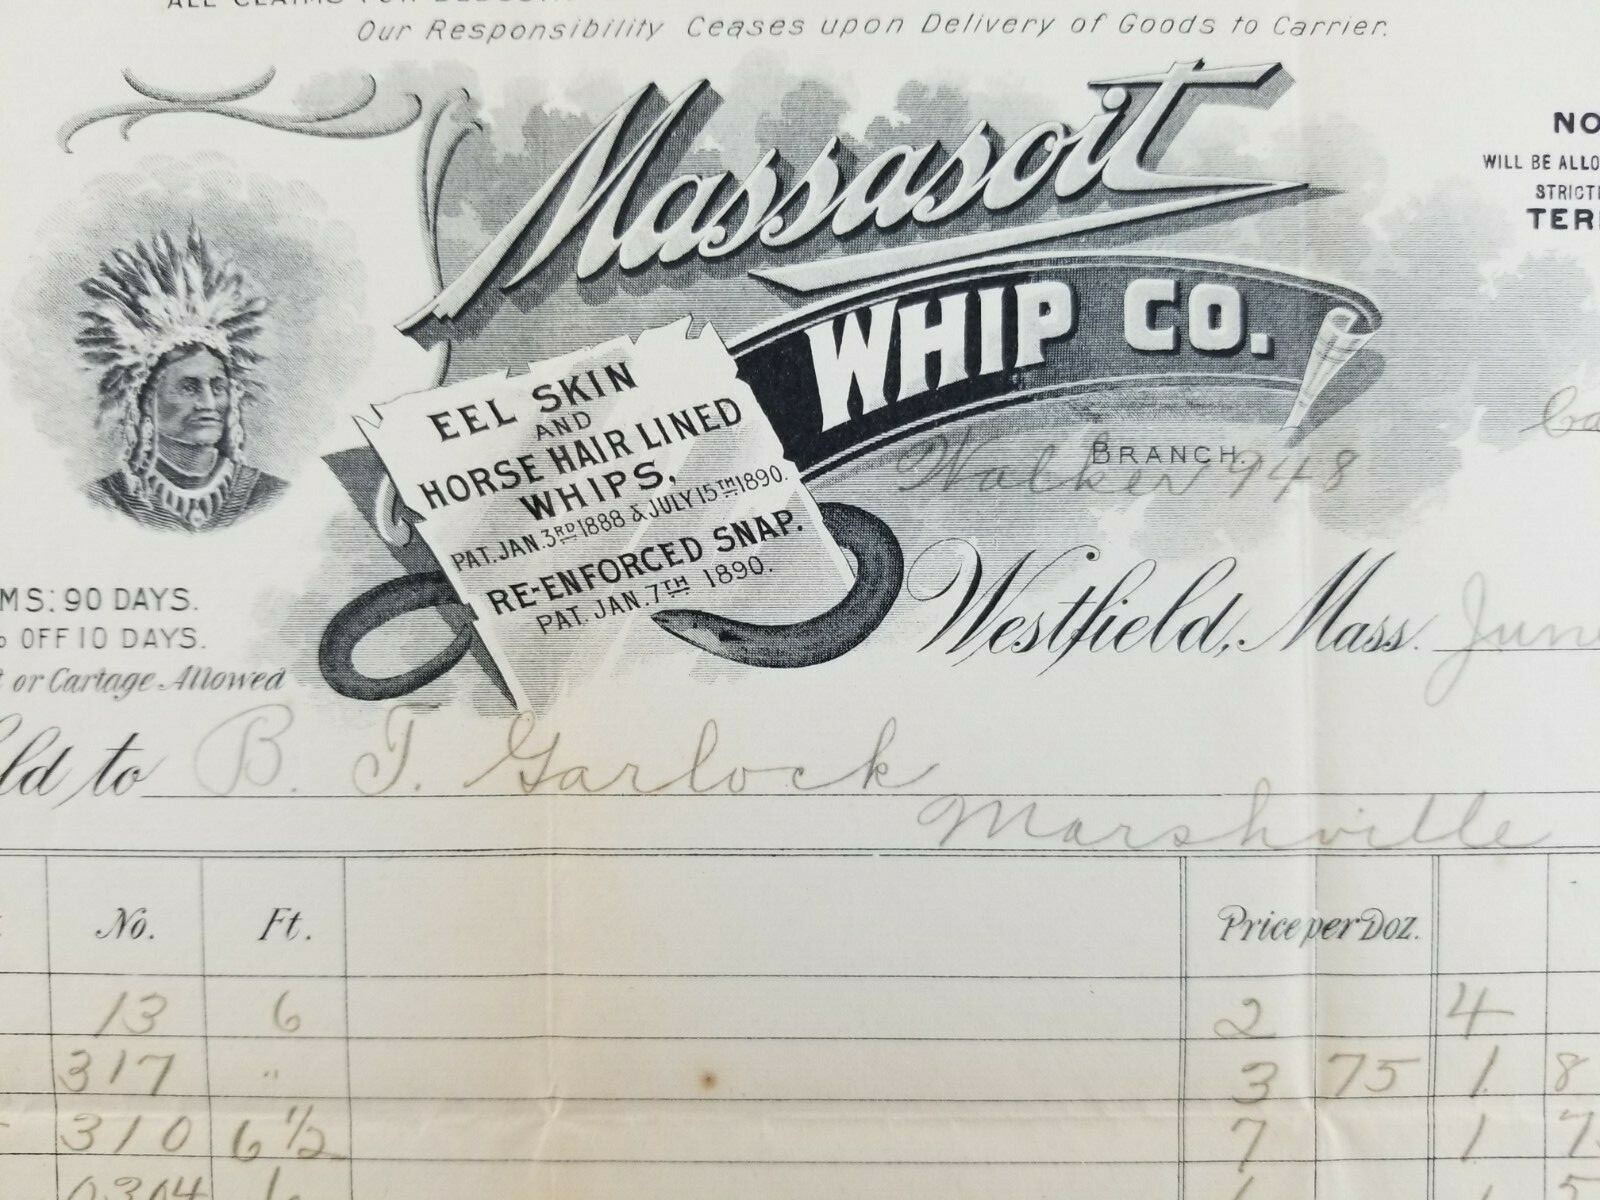 ALL CLAIMS FOR
Our Responsibility Ceases upon Delivery of Goods to Carrier.
Massasoit
WHIP CO.
NO
WILL BE ALLO
STRICT
TER
EEL SKIN
AND
HORSE HAIR LINED
WHIPS.
PAT. JAN. 3RD 1888 & JULY 15TH 1890.
RE-ENFORCED SNAP.
PAT. JAN. 7TH 1890.
BRANCH.
Walker 948
MS: 90 DAYS.
% OFF 10 DAYS.
t or Cartage Allowed
Westfield, Mass. June
ld to B. T. Garlock
Marshville
No. Ft. Price per Doz.
13 6 2 4
317 " 3 75 1 8
310 6 1/2 7 1 7
0304